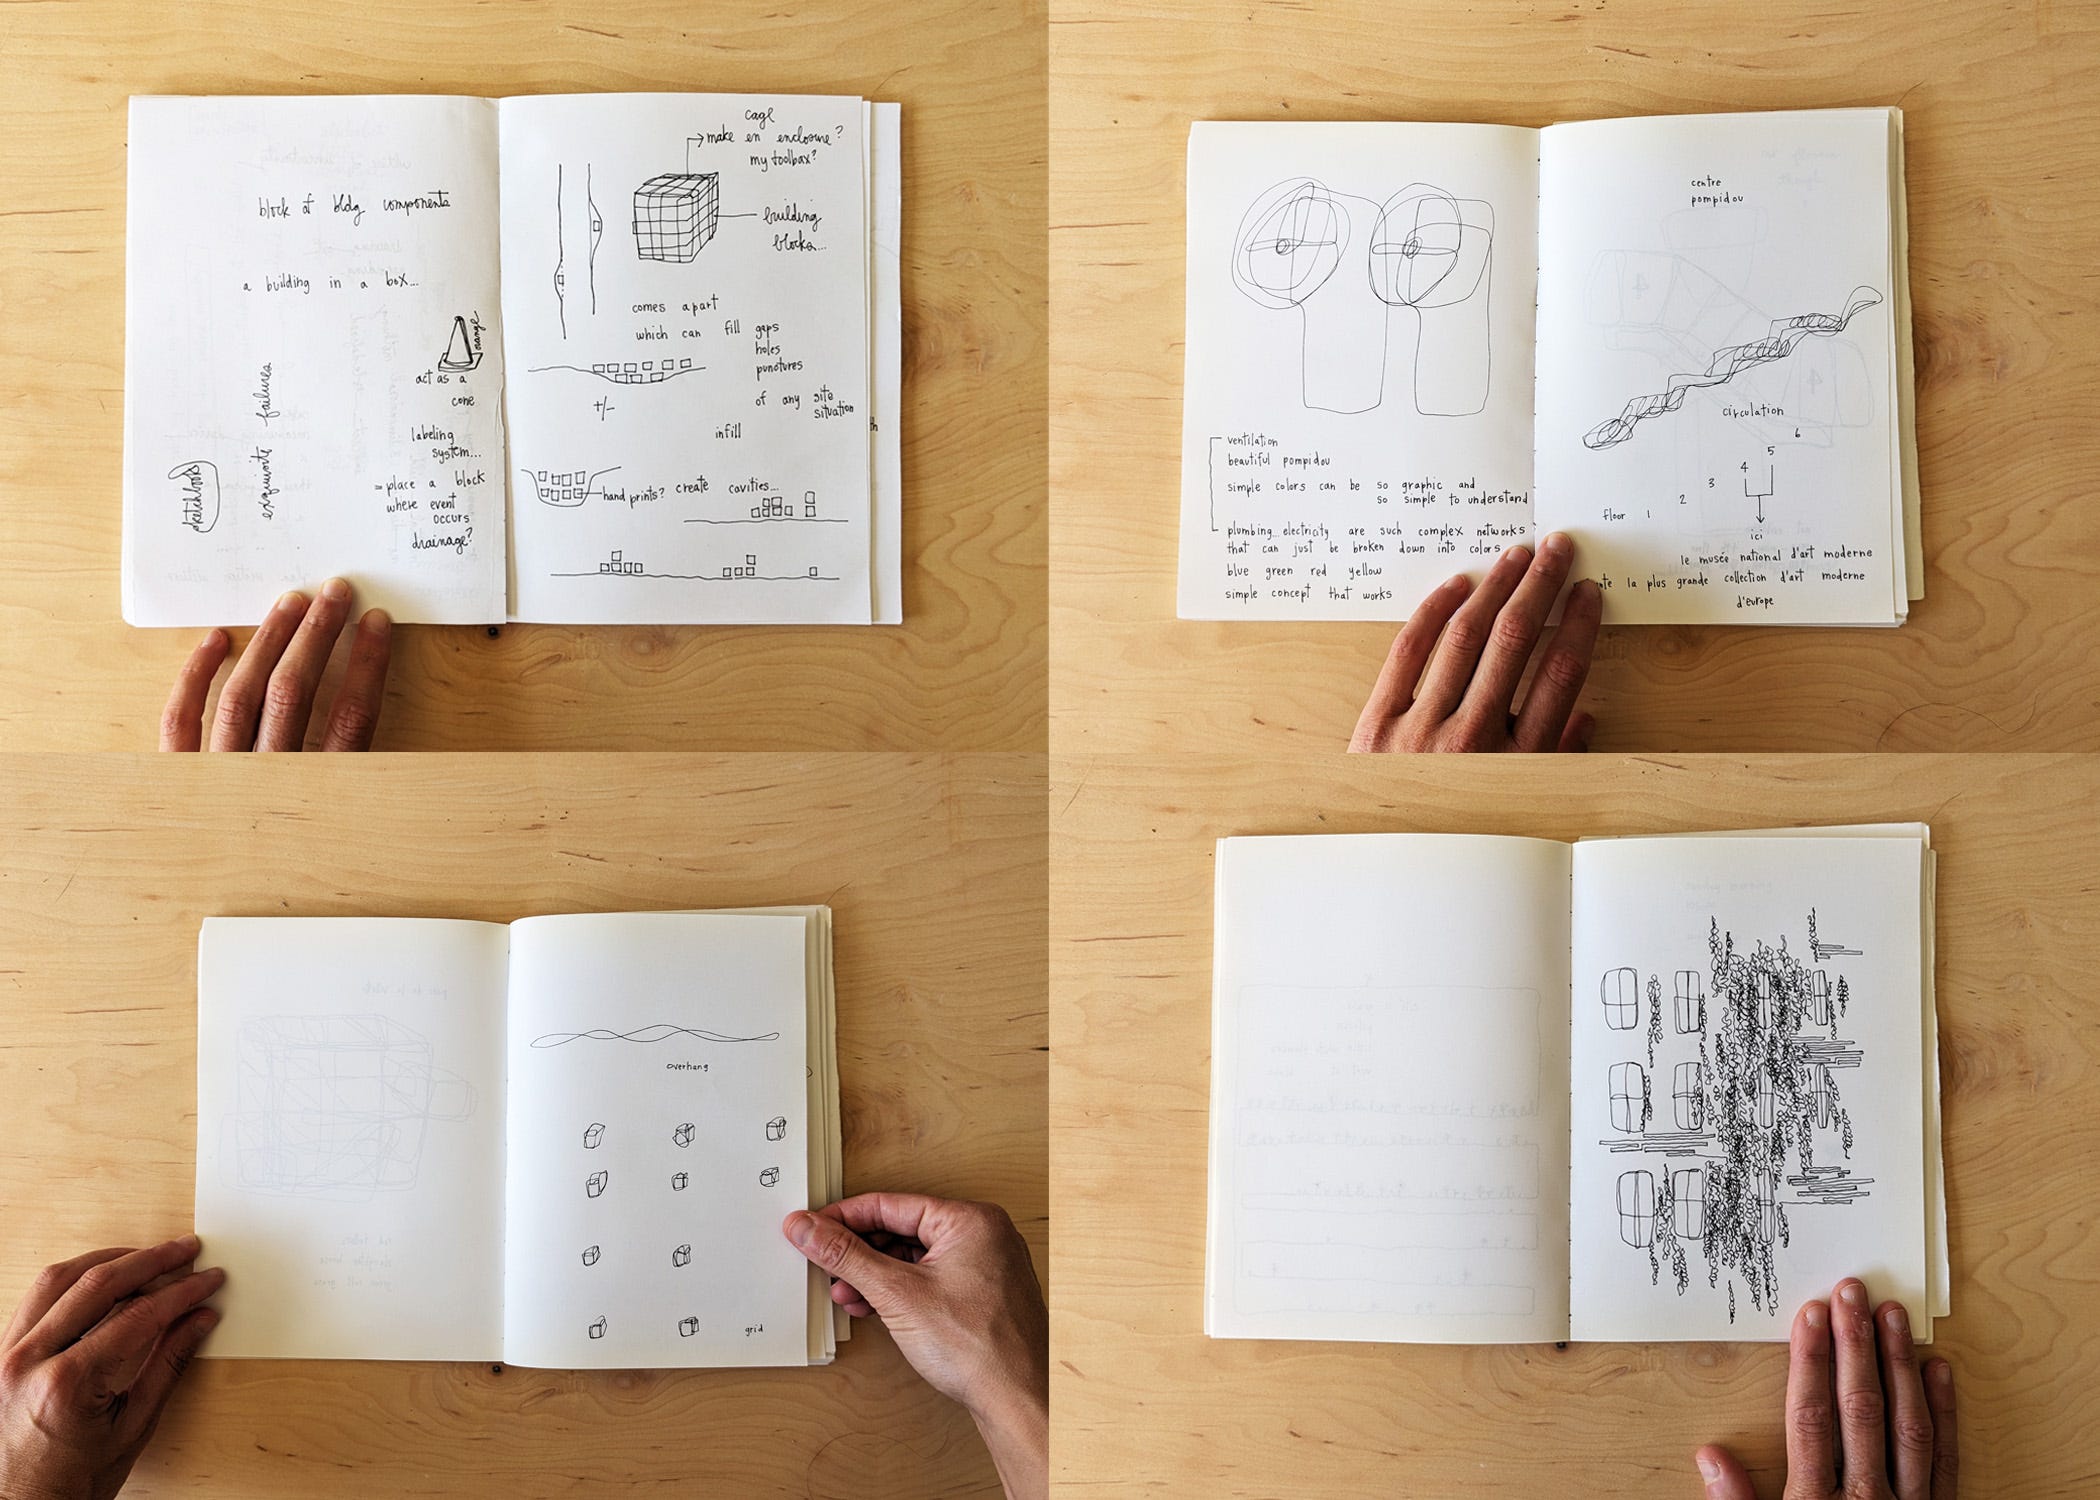 block of bldg components
a building in a box...
orange
act as a
cone
labeling
system...
= place a block
where event
occurs
drainage?
exquisite failures
sketchbook
cage
make en enclosure?
my toolbox?
building
blocks...
comes apart
which can fill gaps
holes
punctures
of any site
situation
+/-
infill
hand prints? create cavities...
th
ventilation
beautiful pompidou
simple colors can be so graphic and
so simple to understand
plumbing... electricity are such complex networks
that can just be broken down into colors
blue green red yellow
simple concept that works
centre
pompidou
circulation
6
5
4
3
2
floor 1
ici
le musée national d'art moderne
la plus grande collection d'art moderne
d'europe
overhang
grid